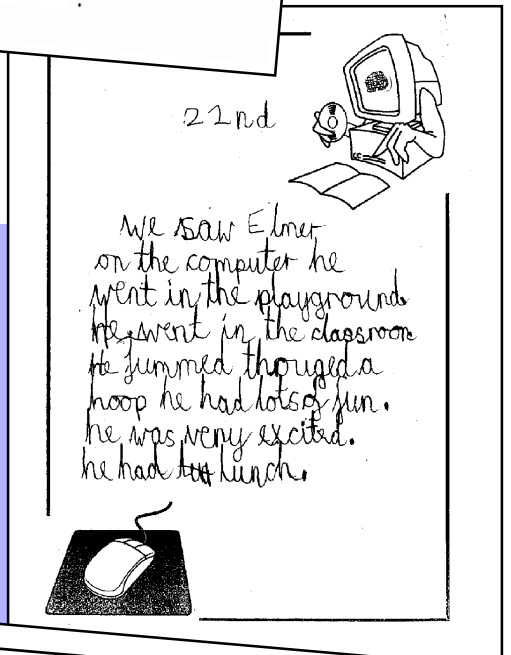 22nd
we saw Elmer
on the computer he
went in the playground.
he went in the classroom
He jummed thouged a
hoop he had lots of fun.
he was very excited.
he had lunch.